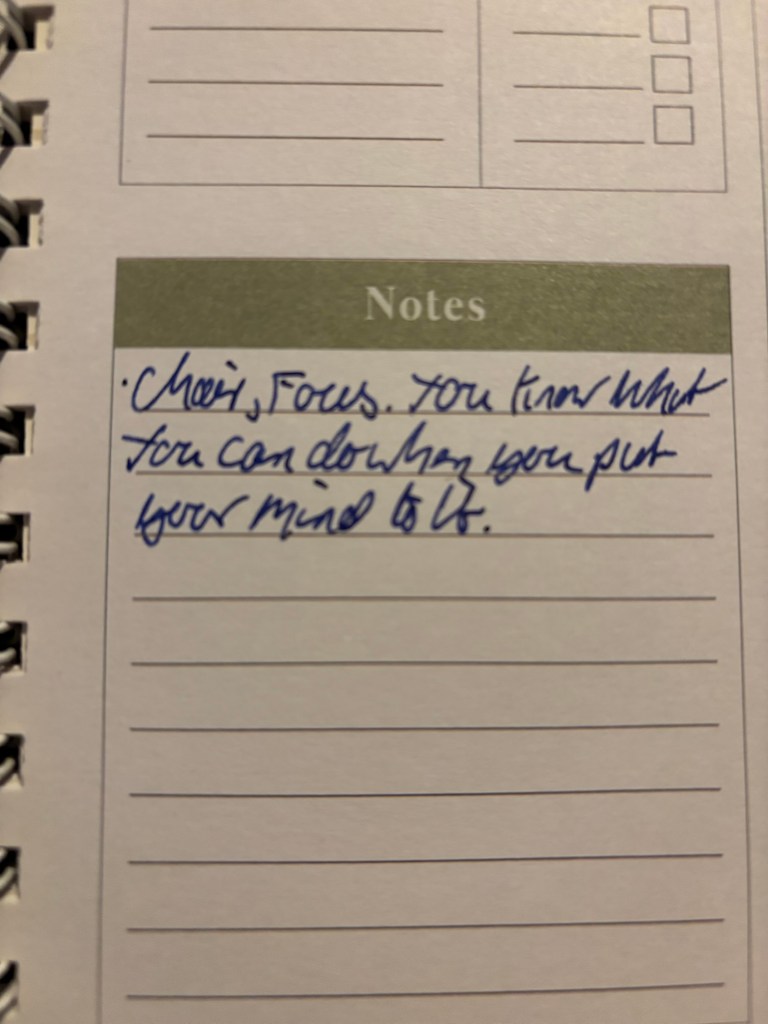 Notes
· Chair, Focus. You know what
you can do when you put
your mind to it.